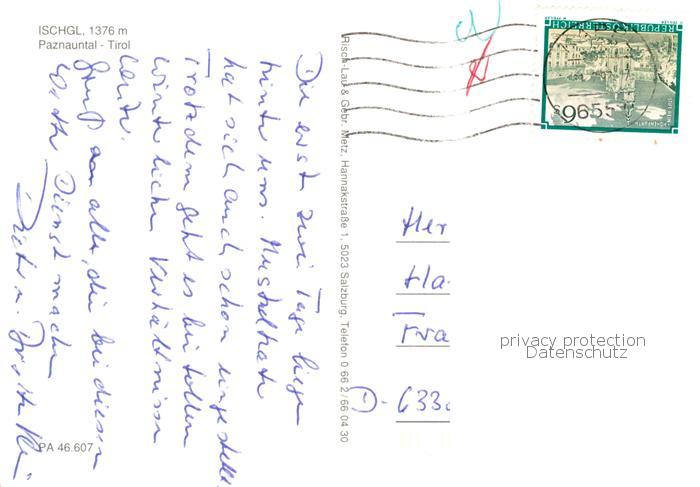 ISCHGL, 1376 m
Paznauntal - Tirol
Die erst zwei Tage liegen
hinter uns. Muskelkater
hat sich auch schon eingestellt.
Trotzdem geht es bei tollen
winterlichen Verhältnissen
weiter.
Gruß an alle, die bei diesem
Wetter Dienst machen
PA 46.607
Risch-Lau & Gebr. Metz, Hannakstraße 1, 5023 Salzburg, Telefon 0 66 2 / 66 04 30
REPUBLIK ÖSTERREICH
Her
Ha
Fra
D - 633
privacy protection
Datenschutz